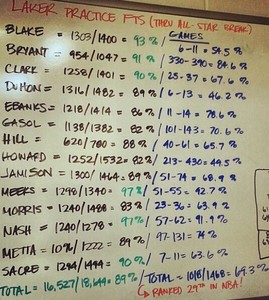 LAKER PRACTICE FTS (THRU ALL-STAR BREAK)
GAMES
BLAKE = 1303/1400 = 93% / 6-11 = 54.5%
BRYANT = 954/1047 = 91% / 330-390 = 84.6%
CLARK = 1258/1401 = 90% / 25-37 = 67.6%
DUHON = 1316/1482 = 89% / 6-13 = 46.2%
EBANKS = 1218/1414 = 86% / 11-14 = 78.6%
GASOL = 1138/1382 = 82% / 101-143 = 70.6%
HILL = 620/700 = 88% / 40-61 = 65.7%
HOWARD = 1252/1532 = 82% / 213-430 = 49.5%
JAMISON = 1300/1464 = 89% / 51-74 = 68.9%
MEEKS = 1298/1340 = 97% / 51-55 = 92.7%
MORRIS = 1240/1488 = 83% / 23-36 = 63.9%
NASH = 1240/1278 = 97% / 57-62 = 91.9%
METTA = /1222 = 89% / 97-131 = 74%
SACRE = 1294/1444 = 90% / 7-11 = 63.6%
TOTAL = 16,527/18,644 = 89% / TOTAL = 1018/1468 = 69.3%
RANKED 29TH IN NBA!